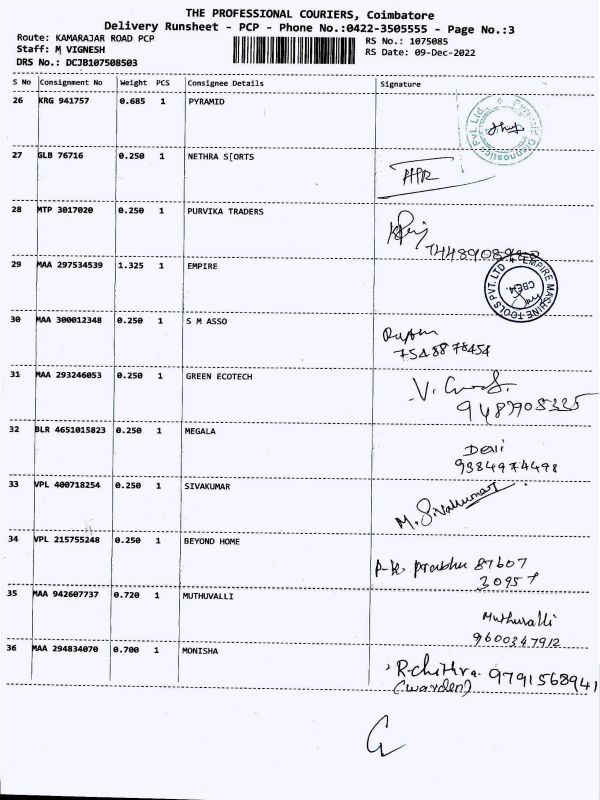 THE PROFESSIONAL COURIERS, Coimbatore
Delivery Runsheet - PCP - Phone No.:0422-3505555 - Page No.:3
Route: KAMARAJAR ROAD PCP
RS No.: 1075085
Staff: M VIGNESH
RS Date: 09-Dec-2022
DRS No.: DCJB107508503
S No Consignment No Weight PCS Consignee Details Signature
26 KRG 941757 0.685 1 PYRAMID
Pyramid Diagnostics Pvt. Ltd.
27 GLB 76716 0.250 1 NETHRA S[ORTS
28 MTP 3017020 0.250 1 PURVIKA TRADERS
29 MAA 297534539 1.325 1 EMPIRE
EMPIRE MACHINE TOOLS PVT. LTD
CBE-4.
30 MAA 300012348 0.250 1 S M ASSO
7548878454
31 MAA 293246053 0.250 1 GREEN ECOTECH
32 BLR 4651015823 0.250 1 MEGALA
Devi
9384974498
33 VPL 400718254 0.250 1 SIVAKUMAR
M. Sivakumar
34 VPL 215755248 0.250 1 BEYOND HOME
P-K. Prabhu 87607
30957
35 MAA 942607737 0.720 1 MUTHUVALLI
Muthuvalli
9600347912
36 MAA 294834070 0.700 1 MONISHA
R-chithra 9791568941
(warden)